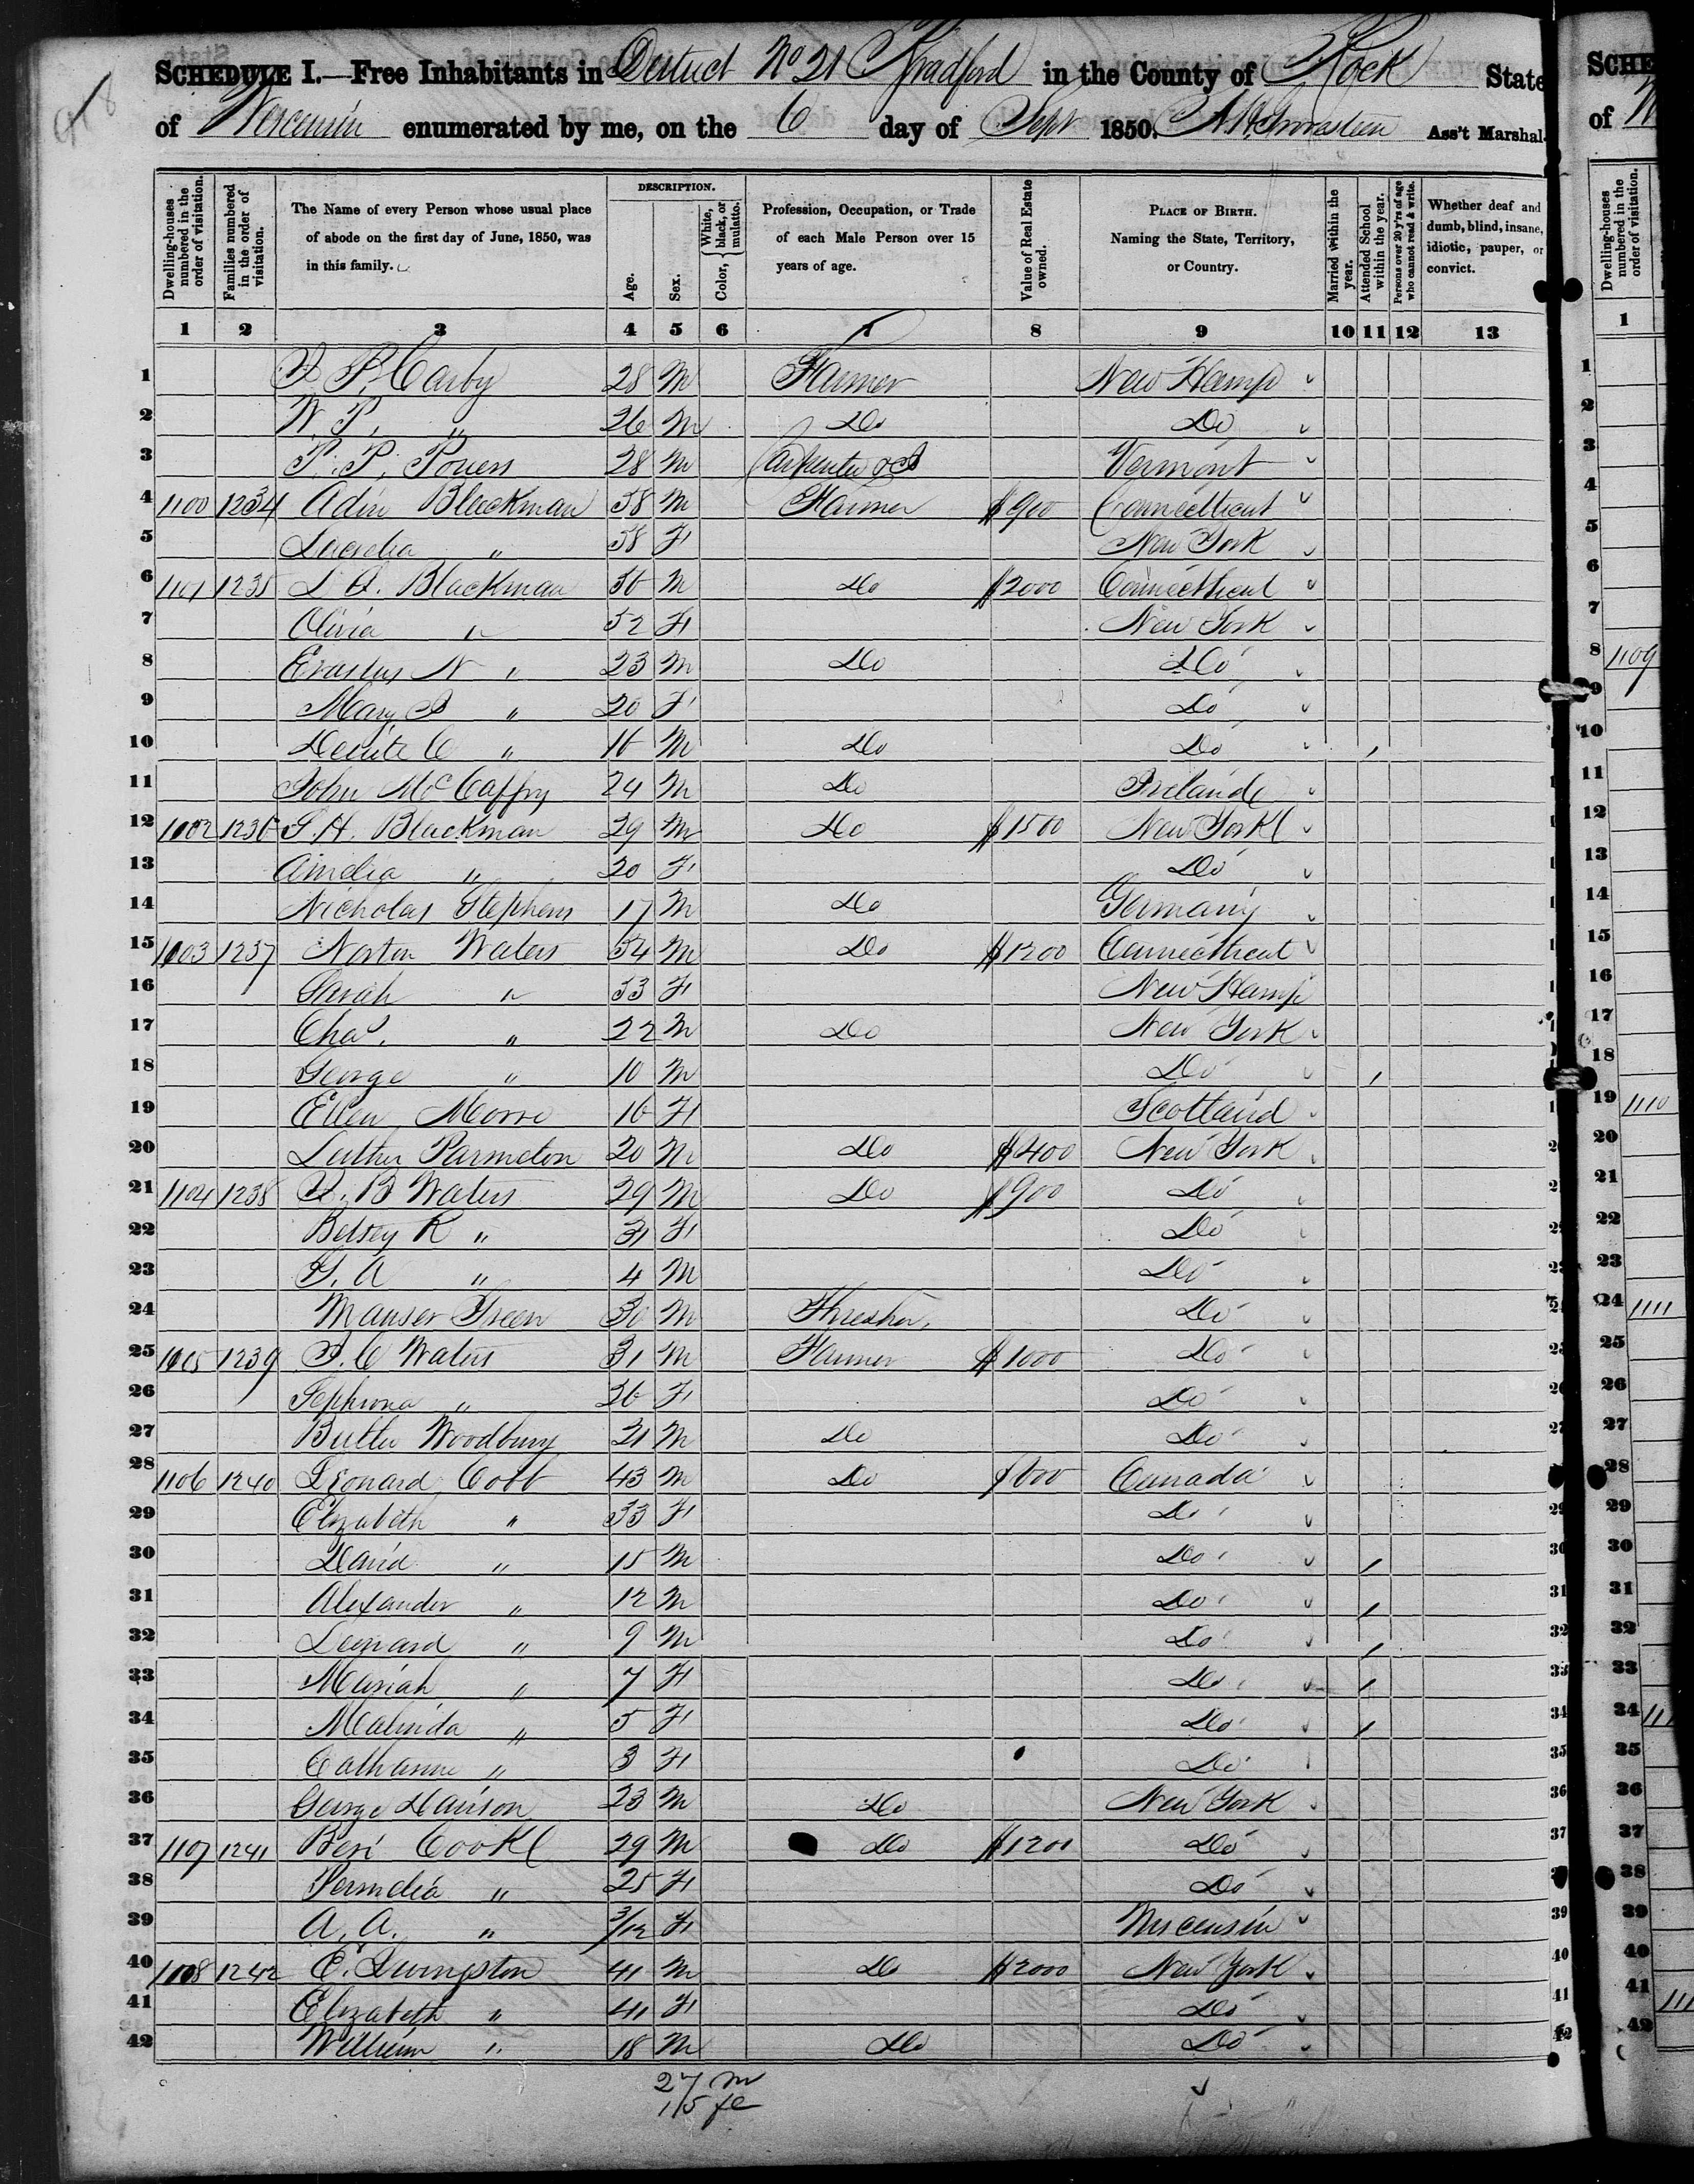 SCHEDULE I.—Free Inhabitants in District No 21 Bradford in the County of Rock State
of enumerated by me, on the 6 day of Sept 1850. Ass't Marshal.
Dwelling-houses numbered in the order of visitation.
Families numbered in the order of visitation.
The Name of every Person whose usual place of abode on the first day of June, 1850, was in this family.
DESCRIPTION.
Age.
Sex.
Color, { White, black, or mulatto.
Profession, Occupation, or Trade of each Male Person over 15 years of age.
Value of Real Estate owned.
PLACE OF BIRTH. Naming the State, Territory, or Country.
Married within the year.
Attended School within the year.
Persons over 20 y'rs of age who cannot read & write.
Whether deaf and dumb, blind, insane, idiotic, pauper, or convict.
1 2 3 4 5 6 7 8 9 10 11 12 13
1 28 M Farmer New Hamp
2 W. P. " 26 M Do Do
3 P. P. Powers 28 M Vermont
4 1100 1234 Blackman 58 M Farmer $900 Connecticut
5 " 58 F New York
6 1101 1235 Blackman 56 M Do $2000 Connecticut
7 Olivia " 52 F New York
8 Erastus N " 23 M Do Do
9 Mary " 20 F Do
10 " 16 M Do Do
11 John McCaffry 24 M Do Ireland
12 1102 1236 Blackman 29 M Do $1500 New York
13 Amelia " 20 F Do
14 Nicholas Stephens 17 M Do Germany
15 1103 1237 Norton Waters 54 M Do $1200 Connecticut
16 Sarah " 53 F New Hamp
17 Chas. " 22 M Do New York
18 George " 10 M Do
19 Ellen 16 F Scotland
20 Luther Parmeton 20 M Do $400 New York
21 1104 1238 Waters 29 M Do $900 Do
22 Betsey R " 31 F Do
23 " 4 M Do
24 Green 30 M Thresher Do
25 1105 1239 Waters 31 M Farmer $1000 Do
26 " 26 F Do
27 Butler Woodbury 21 M Do Do
28 1106 1240 Leonard Cobb 43 M Do $600 Canada
29 Elizabeth " 33 F Do
30 David " 15 M Do
31 Alexander " 12 M Do
32 Leonard " 9 M Do
33 Mariah " 7 F Do
34 Malinda " 5 F Do
35 Catharine " 3 F Do
36 George 23 M Do New York
37 1107 1241 29 M Do $1200 Do
38 Permelia " 25 F Do
39 A. A. " 3/12 F Wisconsin
40 1108 1242 E. Livingston 41 M Do $2000 New York
41 Elizabeth " 41 F Do
42 William " 18 M Do Do
27 m
15 fe
SCHE
of
Dwelling-houses numbered in the order of visitation.
1
1
2
3
4
5
6
7
8 1109
9
10
11
12
13
14
15
16
17
18
19 1110
20
21
22
23
24 1111
25
26
27
28
29
30
31
32
33
34
35
36
37
38
39
40
41
42